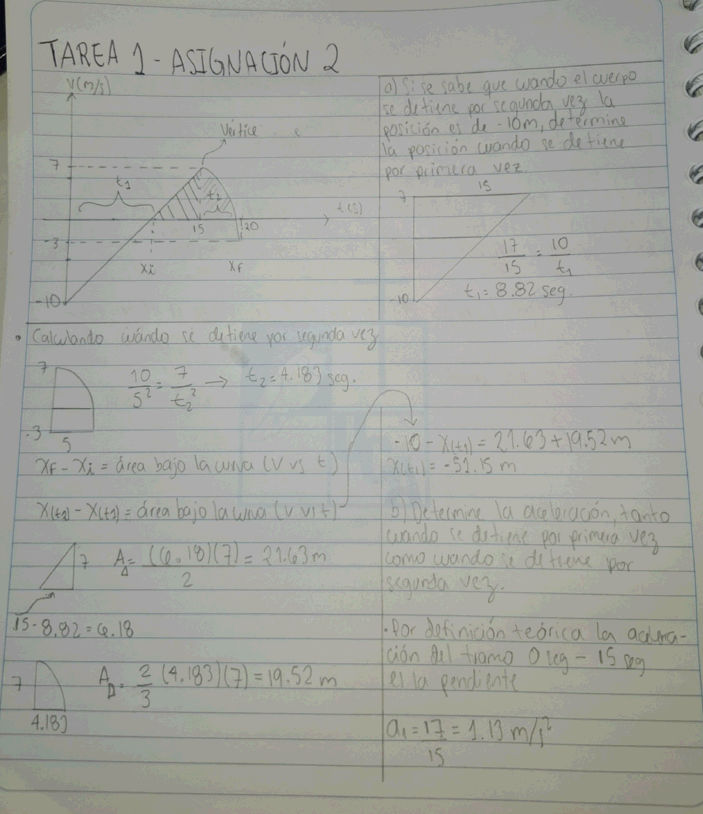 TAREA 1 - ASIGNACIÓN 2
V(m/s)
Vértice
7
t1
t2
t(s)
15
20
-3
xi
xF
-10
a) Si se sabe que cuando el cuerpo
se detiene por segunda vez la
posición es de -10m, determine
la posición cuando se detiene
por primera vez
15
7
17/15 = 10/t1
-10
t1 = 8.82 seg.
• Calculando cuándo se detiene por segunda vez
7
10/5² = 7/t2² → t2 = 4.183 seg.
-3
5
xF - xi = área bajo la curva (V vs t)
X(t2) - X(t1) = área bajo la curva (V vs t)
7 A△ = (6.18)(7)/2 = 21.63m
15 - 8.82 = 6.18
7 AD = 2/3 (4.183)(7) = 19.52 m
4.183
-10 - X(t1) = 21.63 + 19.52 m
X(t1) = -51.15 m
b) Determine la aceleración, tanto
cuando se detiene por primera vez
como cuando se detiene por
segunda vez.
• Por definición teórica la acelera-
ción del tramo 0 seg - 15 seg
es la pendiente
a1 = 17/15 = 1.13 m/s²